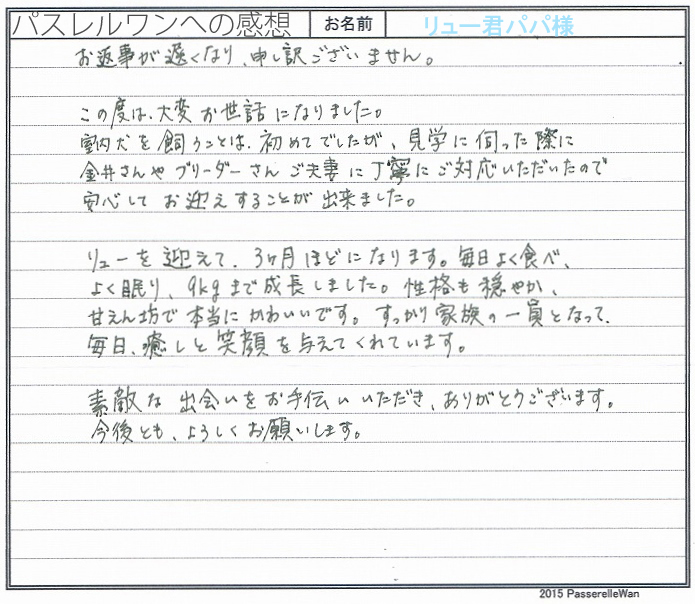 パスレルワンへの感想 お名前 リュー君パパ様
お返事が遅くなり、申し訳ございません。
この度は、大変お世話になりました。
室内犬を飼うことは、初めてでしたが、見学に伺った際に
金井さんやブリーダーさんご夫妻に丁寧にご対応いただいたので
安心してお迎えすることが出来ました。
リューを迎えて、3ヶ月ほどになります。毎日よく食べ、
よく眠り、9kgまで成長しました。性格も穏やか、
甘えん坊で本当にかわいいです。すっかり家族の一員となって、
毎日、癒しと笑顔を与えてくれています。
素敵な出会いをお手伝いいただき、ありがとうございます。
今後とも、よろしくお願いします。
2015 PasserelleWan